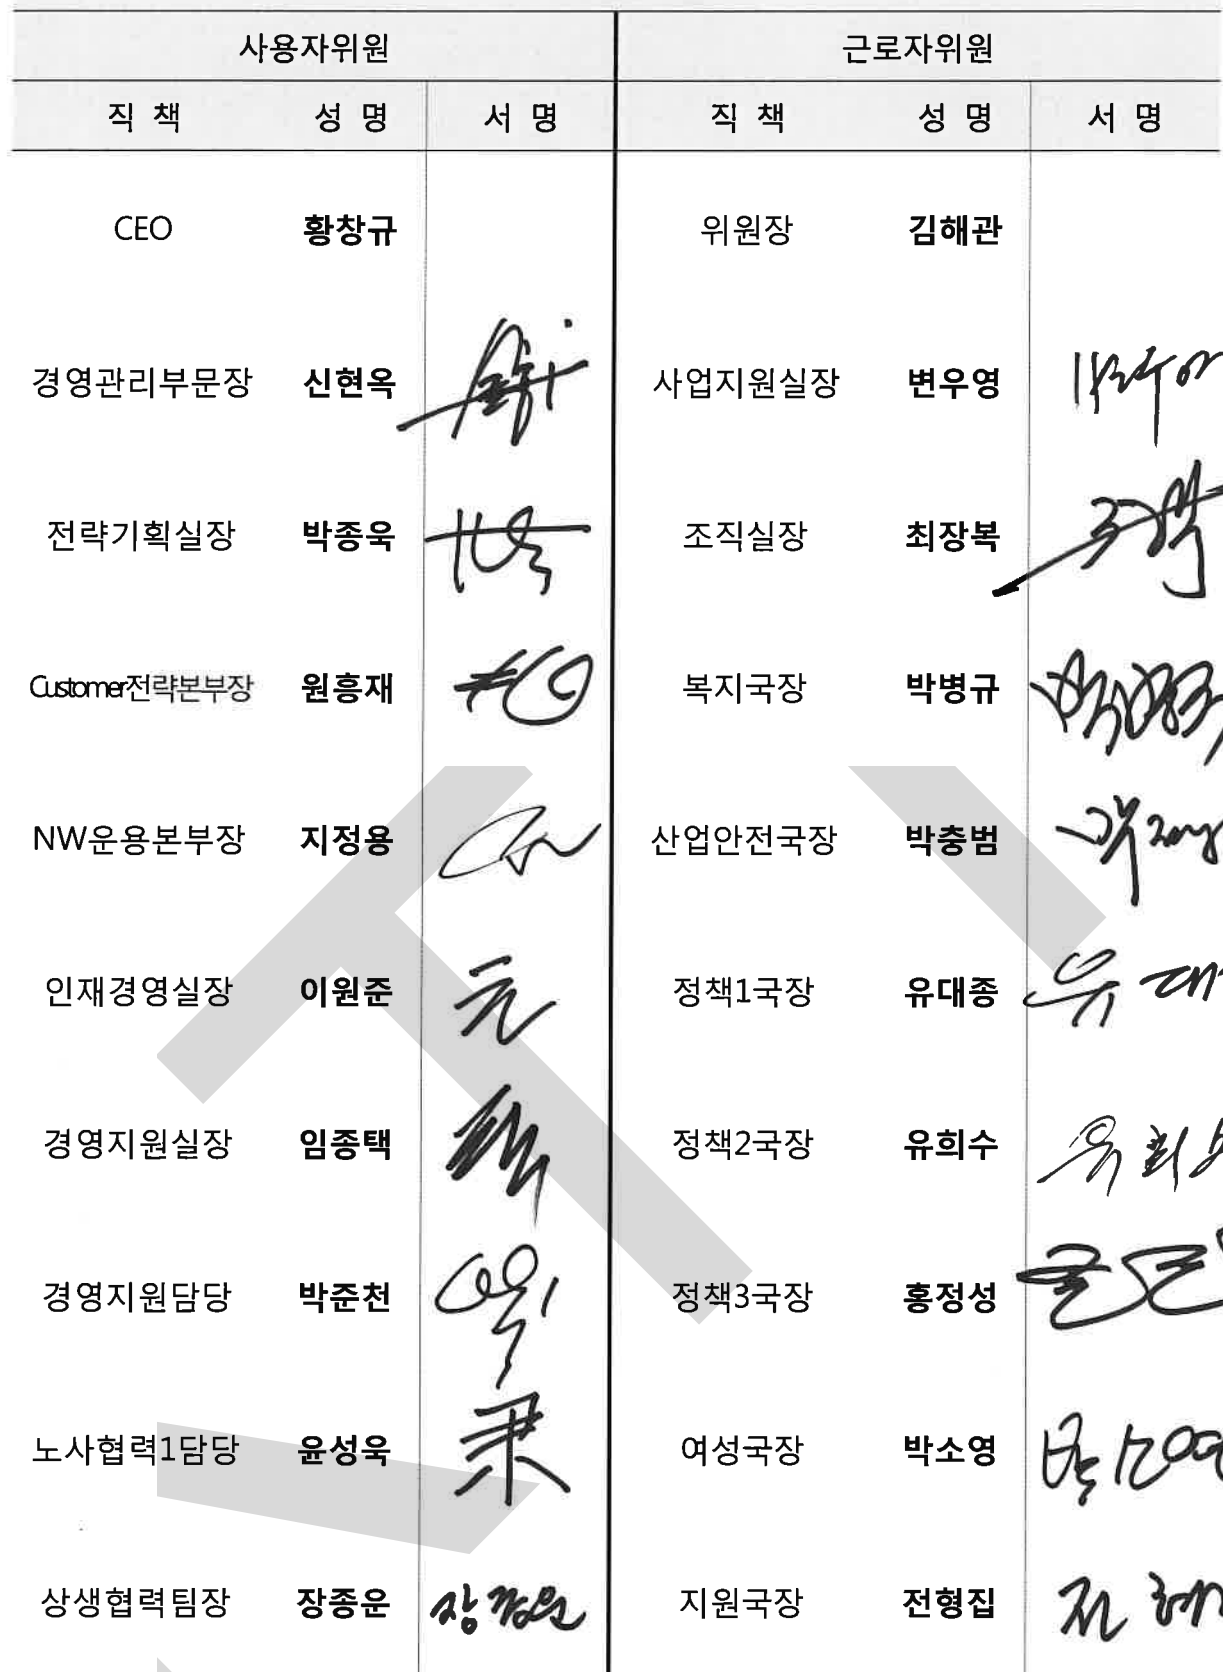 사용자위원 근로자위원
직 책 성 명 서 명 직 책 성 명 서 명
CEO 황창규 위원장 김해관
경영관리부문장 신현옥 사업지원실장 변우영
전략기획실장 박종욱 조직실장 최장복
Customer전략본부장 원흥재 복지국장 박병규
NW운용본부장 지정용 산업안전국장 박충범
인재경영실장 이원준 정책1국장 유대종 유 대
경영지원실장 임종택 정책2국장 유희수 유희수
경영지원담당 박준천 정책3국장 홍정성
노사협력1담당 윤성욱 여성국장 박소영 박소영
상생협력팀장 장종운 장종운 지원국장 전형집 전형